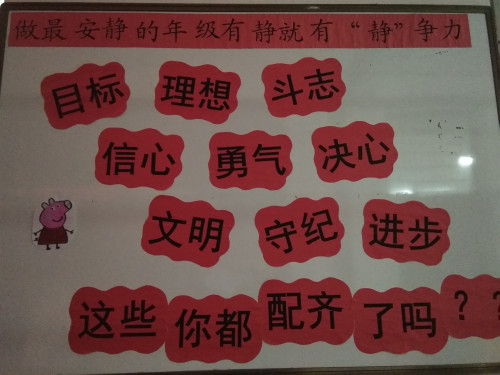 做最安静的年级有静就有“静”争力
目标 理想 斗志
信心 勇气 决心
文明 守纪 进步
这些 你都 配齐 了吗 ??